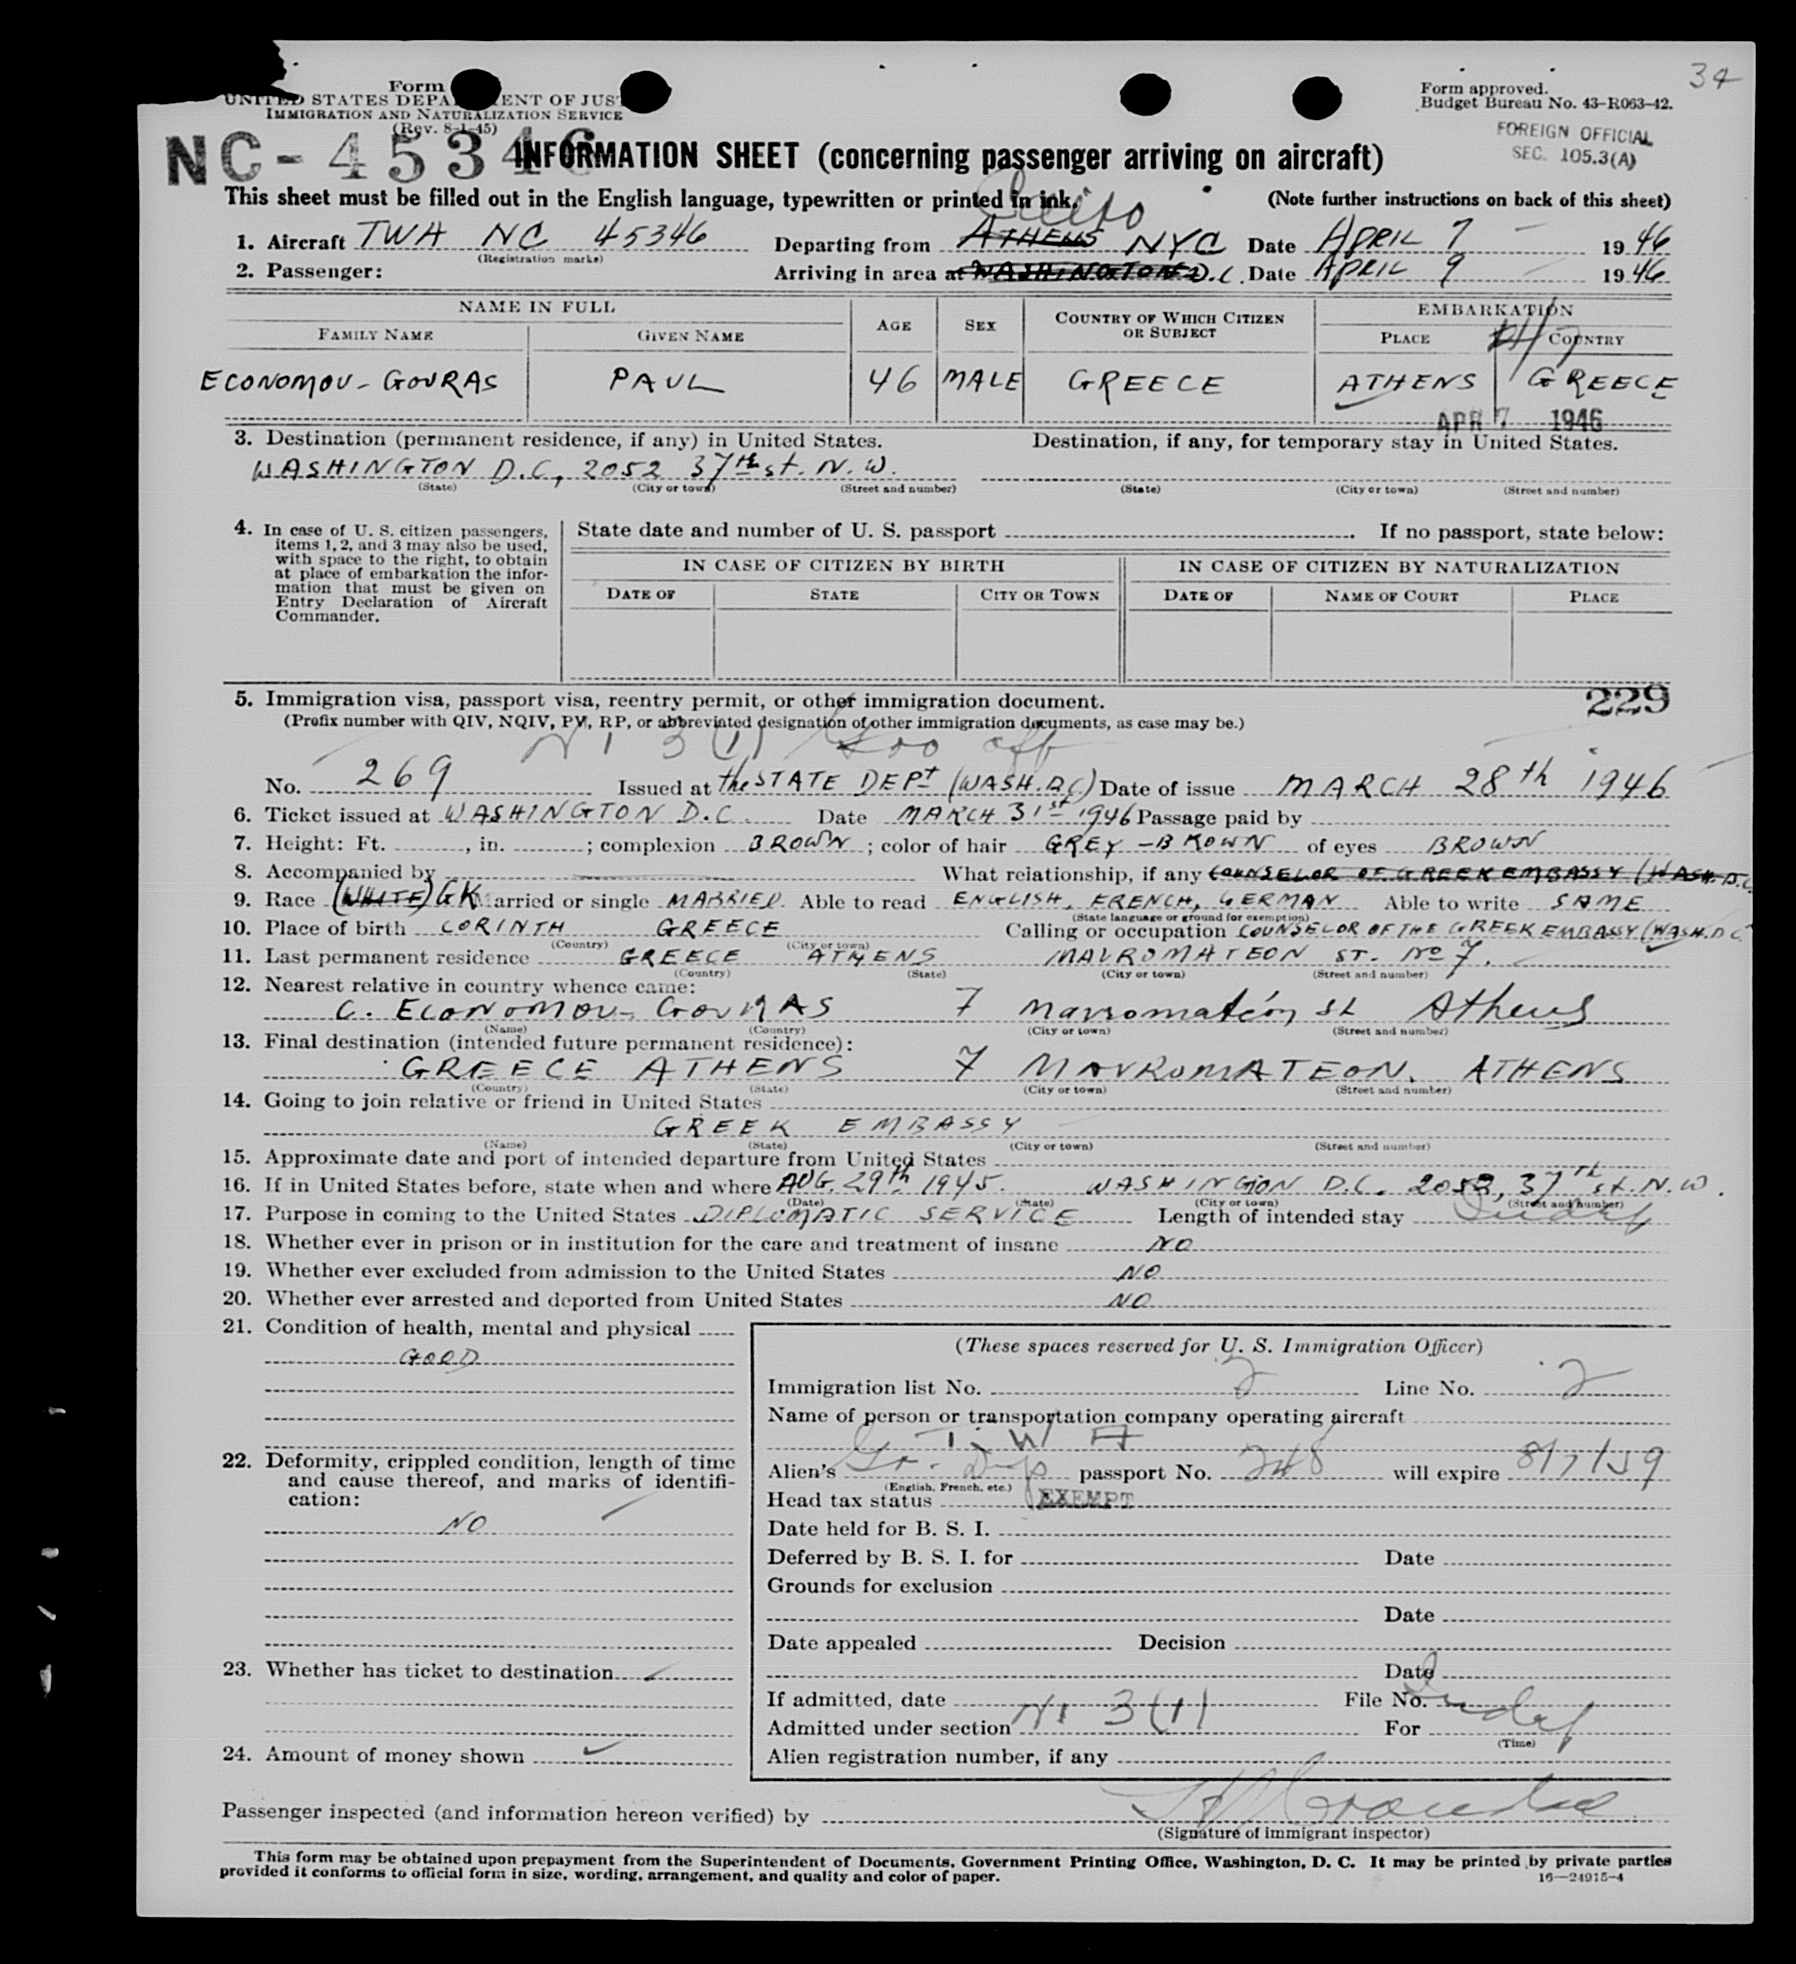 34
Form
UNITED STATES DEPA ENT OF JUS
IMMIGRATION AND NATURALIZATION SERVICE
(Rev. 8-1-45)
Form approved.
Budget Bureau No. 43-R063-42.
FOREIGN OFFICIAL
SEC. 105.3(A)
NC-45346
INFORMATION SHEET (concerning passenger arriving on aircraft)
This sheet must be filled out in the English language, typewritten or printed in ink. (Note further instructions on back of this sheet)
Cairo
1. Aircraft TWA NC 45346 Departing from ATHENS NYC Date APRIL 7 1946
(Registration marks)
2. Passenger: Arriving in area at WASHINGTON D.C. Date APRIL 9 1946
NAME IN FULL AGE SEX COUNTRY OF WHICH CITIZEN OR SUBJECT EMBARKATION
FAMILY NAME GIVEN NAME PLACE COUNTRY
ECONOMOU-GOURAS PAUL 46 MALE GREECE ATHENS GREECE
APR 7 1946
3. Destination (permanent residence, if any) in United States. Destination, if any, for temporary stay in United States.
WASHINGTON D.C, 2052 37th st. N.W.
(State) (City or town) (Street and number) (State) (City or town) (Street and number)
4. In case of U. S. citizen passengers, items 1, 2, and 3 may also be used, with space to the right, to obtain at place of embarkation the information that must be given on Entry Declaration of Aircraft Commander.
State date and number of U. S. passport If no passport, state below:
IN CASE OF CITIZEN BY BIRTH IN CASE OF CITIZEN BY NATURALIZATION
DATE OF STATE CITY OR TOWN DATE OF NAME OF COURT PLACE
229
5. Immigration visa, passport visa, reentry permit, or other immigration document.
(Prefix number with QIV, NQIV, PV, RP, or abbreviated designation of other immigration documents, as case may be.)
NI 3(1)
No. 269 Issued at the STATE DEPt (WASH. D.C.) Date of issue MARCH 28th 1946
6. Ticket issued at WASHINGTON D.C. Date MARCH 31st 1946 Passage paid by
7. Height: Ft. , in. ; complexion BROWN ; color of hair GREY-BROWN of eyes BROWN
8. Accompanied by What relationship, if any COUNSELOR OF GREEK EMBASSY (WASH. D.C.
9. Race (WHITE) GK Married or single MARRIED. Able to read ENGLISH, FRENCH, GERMAN Able to write SAME
(State language or ground for exemption)
10. Place of birth CORINTH GREECE Calling or occupation COUNSELOR OF THE GREEK EMBASSY (WASH. D.C.
(Country) (City or town)
11. Last permanent residence GREECE ATHENS MAVROMATEON ST. No 7.
(Country) (State) (City or town) (Street and number)
12. Nearest relative in country whence came:
C. ECONOMOU-GOURAS 7 Mavromatéon St Athens
(Name) (Country) (City or town) (Street and number)
13. Final destination (intended future permanent residence):
GREECE ATHENS 7 MAVROMATEON. ATHENS
(Country) (State) (City or town) (Street and number)
14. Going to join relative or friend in United States
GREEK EMBASSY
(Name) (State) (City or town) (Street and number)
15. Approximate date and port of intended departure from United States
16. If in United States before, state when and where AUG. 29th 1945. WASHINGTON D.C. 2052, 37th st. N.W.
(Date) (State) (City or town) (Street and number)
17. Purpose in coming to the United States DIPLOMATIC SERVICE Length of intended stay Indef
18. Whether ever in prison or in institution for the care and treatment of insane NO
19. Whether ever excluded from admission to the United States NO
20. Whether ever arrested and deported from United States NO
21. Condition of health, mental and physical
GOOD
22. Deformity, crippled condition, length of time and cause thereof, and marks of identification:
NO
23. Whether has ticket to destination
24. Amount of money shown
(These spaces reserved for U. S. Immigration Officer)
Immigration list No. 2 Line No. 2
Name of person or transportation company operating aircraft
T. W A
Alien's Gr. Dip passport No. 248 will expire 8/7/59
(English, French, etc.)
Head tax status EXEMPT
Date held for B. S. I.
Deferred by B. S. I. for Date
Grounds for exclusion
Date
Date appealed Decision
Date
If admitted, date File No.
Admitted under section NI 3(1) For Indef
(Time)
Alien registration number, if any
Passenger inspected (and information hereon verified) by
(Signature of immigrant inspector)
This form may be obtained upon prepayment from the Superintendent of Documents, Government Printing Office, Washington, D. C. It may be printed by private parties
provided it conforms to official form in size, wording, arrangement, and quality and color of paper.
16—24975-4